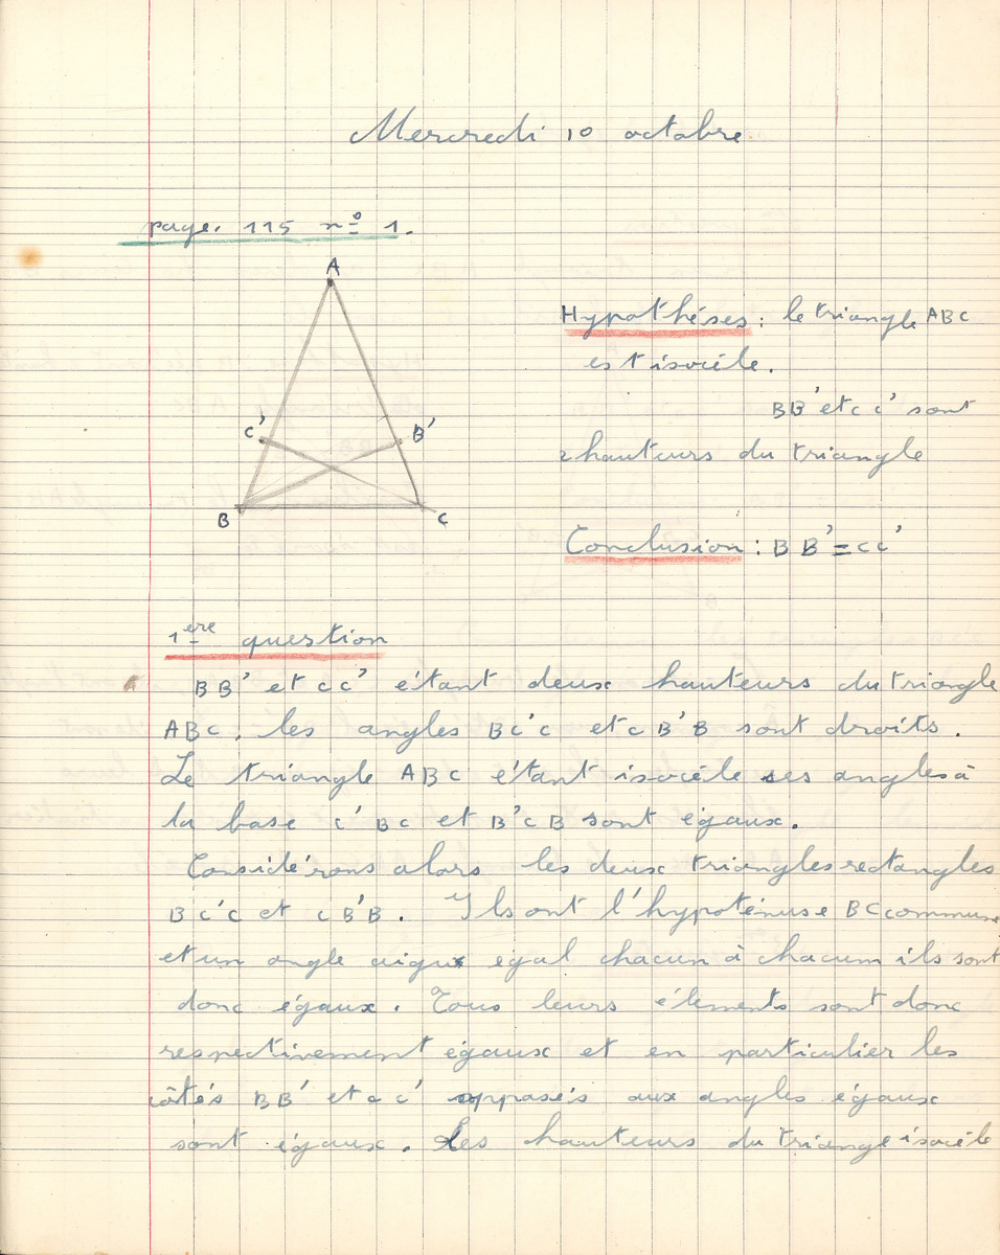 Mercredi 10 octobre
page. 115 nº 1.
A
C'
B'
B
C
Hypothéses : le triangle ABC
est isocéle.
BB' et CC' sont
2 hauteurs du triangle
Conclusion : BB' = CC'
1ere question
BB' et CC' étant deux hauteurs du triangle
ABC, les angles BC'C et CB'B sont droits.
Le triangle ABC étant isocéle ses angles à
la base C'BC et B'CB sont égaux.
Considérons alors les deux triangles rectangles
BC'C et CB'B. Ils ont l'hypoténuse BC commune
et un angle aigu égal chacun à chacum ils sont
donc égaux. Tous leurs élements sont donc
respectivement égaux et en particulier les
côtés BB' et CC' opposés aux angles égaux
sont égaux. Les hauteurs du triange isocéle